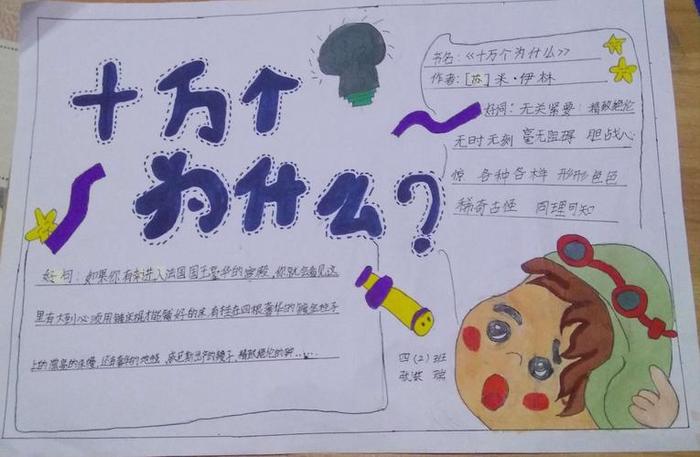 十万个
为什么?
书名:《十万个为什么》
作者:[苏]米·伊林
好词:无关紧要 精致绝伦
无时无刻 毫无阻碍 胆战心
惊 各种各样 形形色色
稀奇古怪 同理可知
好句:如果你有幸进入法国国王豪华的宫殿,你就会看见这
里有大到必须用 才能铺好的床,有柱在四根奢华的 柱子
上的 的床幔,还有奢华的地毯, 的镜子,精致绝伦的钟……
四(2)班